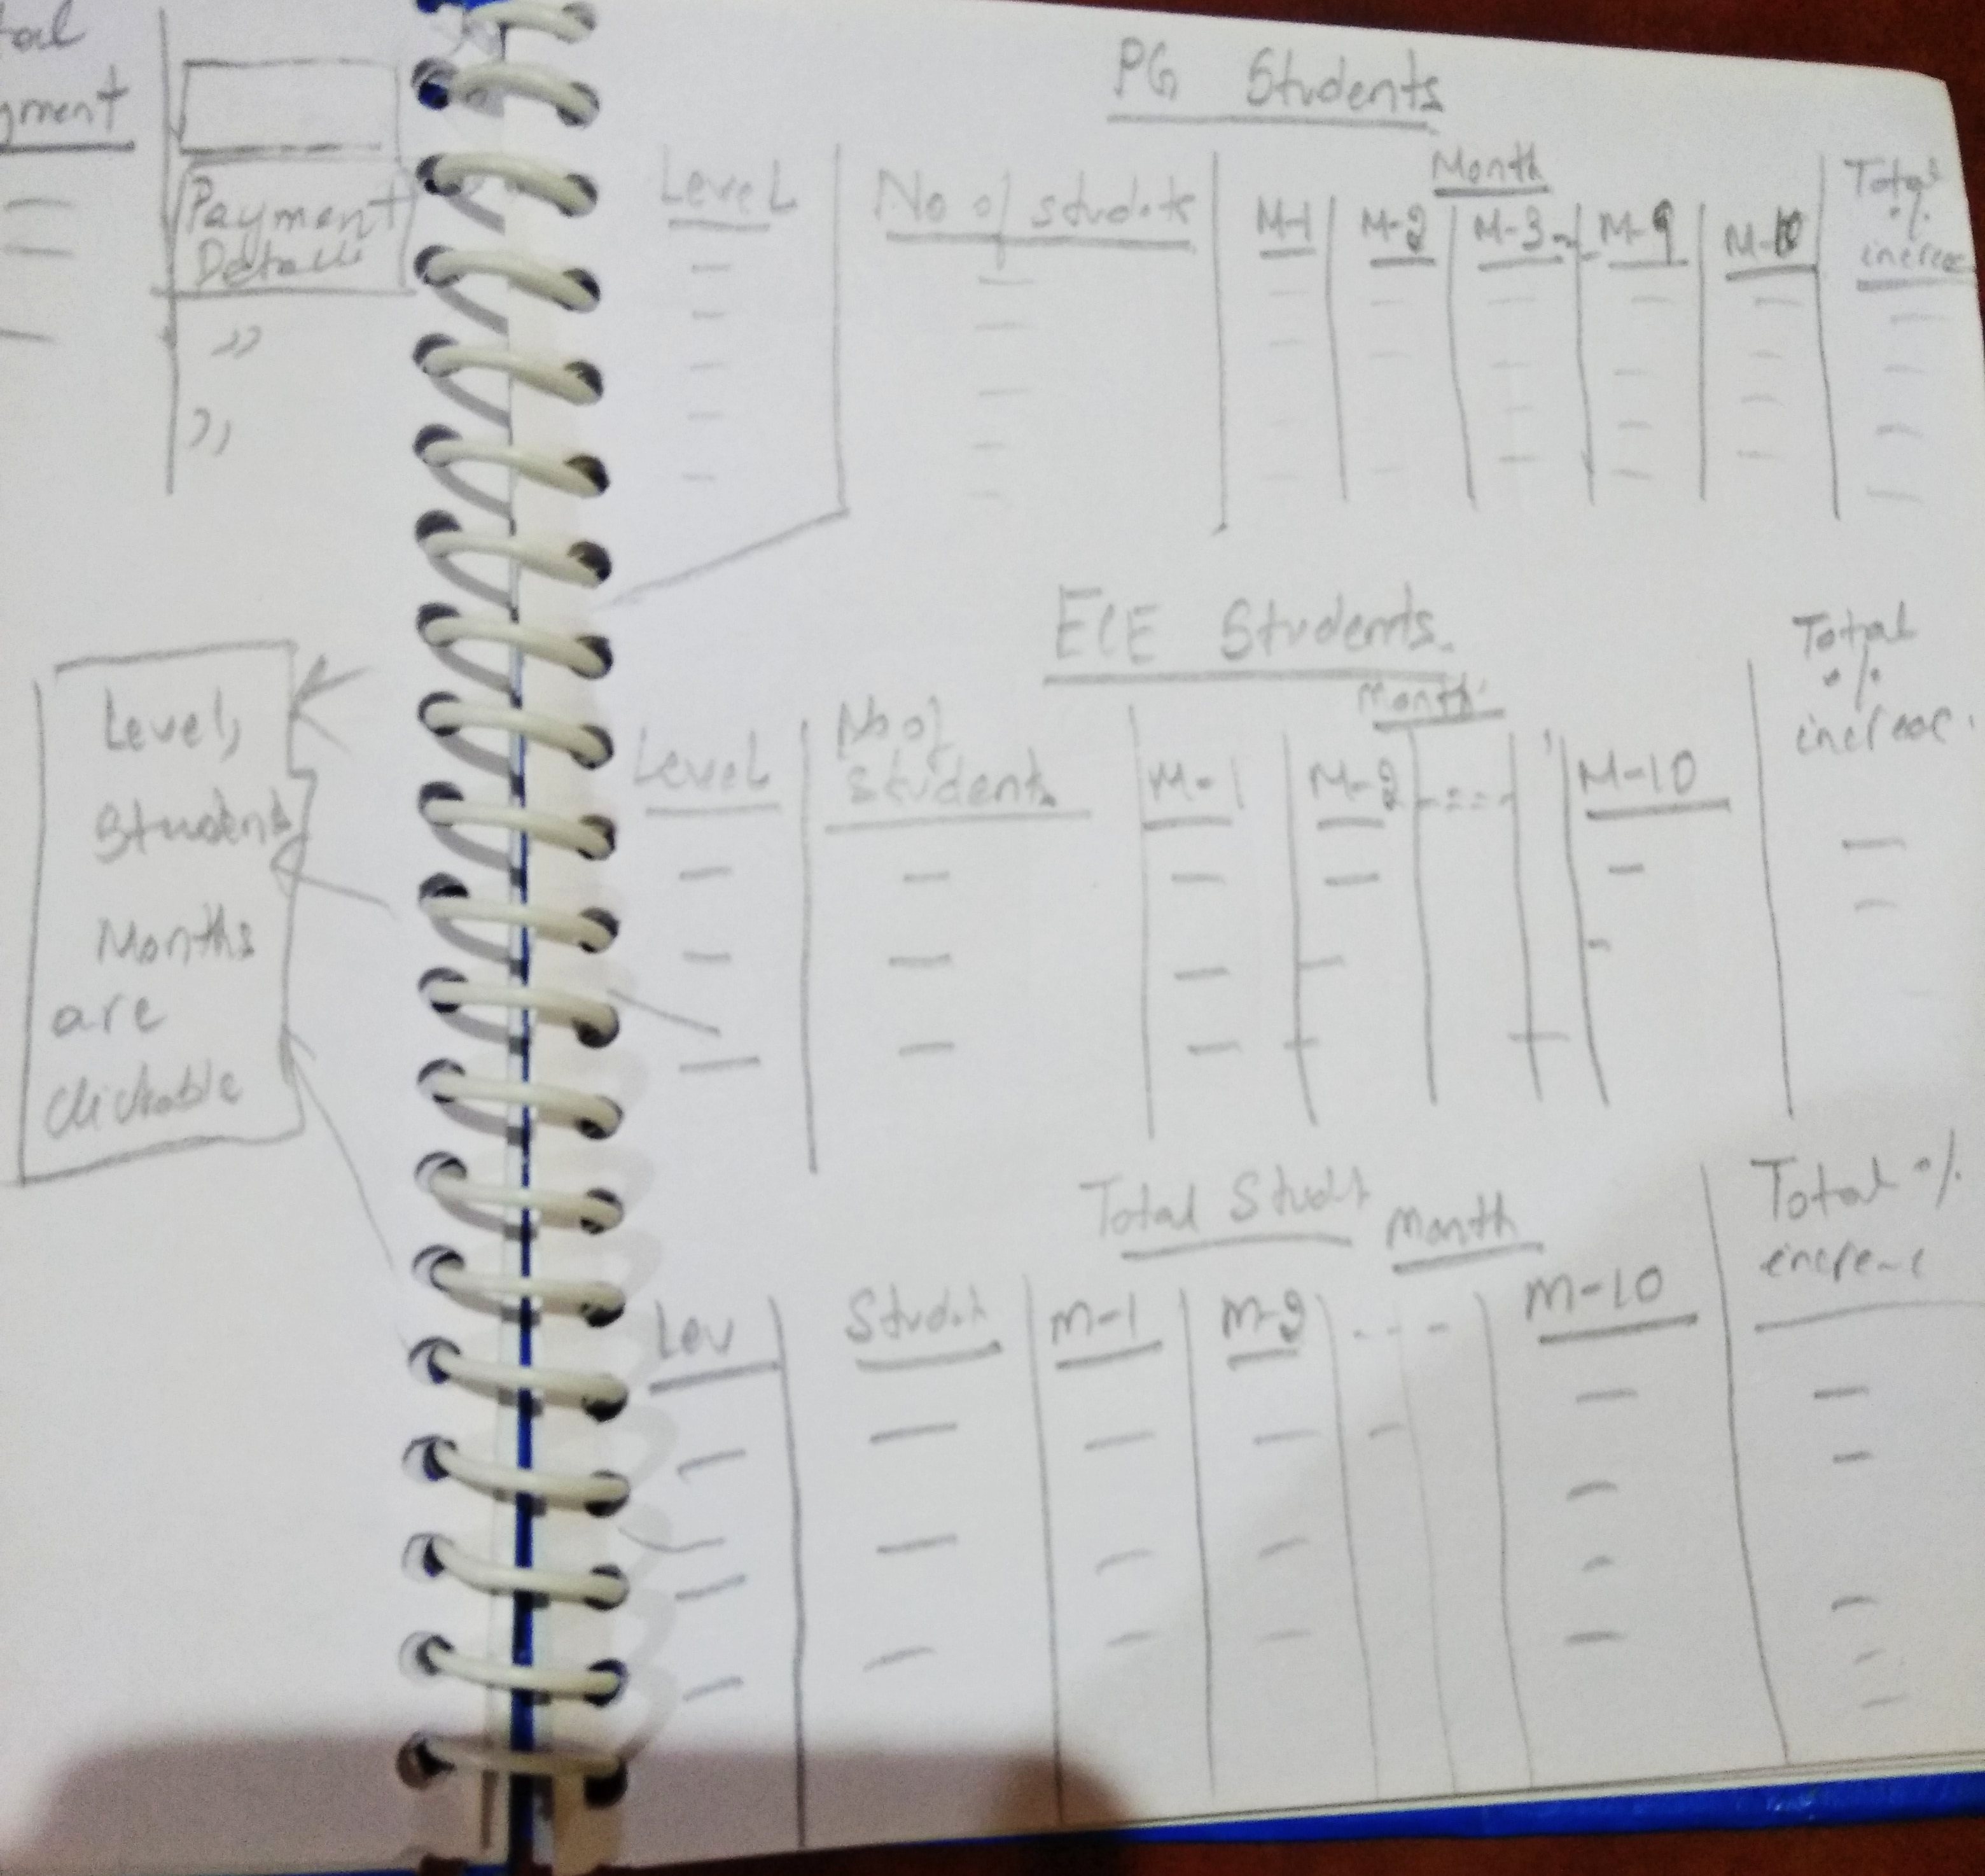 tal
yment
Payment
Details
”
”
Level,
Students
Months
are
Clickable
PG Students
Level
No of students
Month
M-1
M-2
M-3
M-9
M-10
Total
%
increas
ECE Students.
Level
No of
Students
Month
M-1
M-2
M-10
Total
%
increas
Total Studt
Month
Lev
Studet
M-1
M-2
M-10
Total %